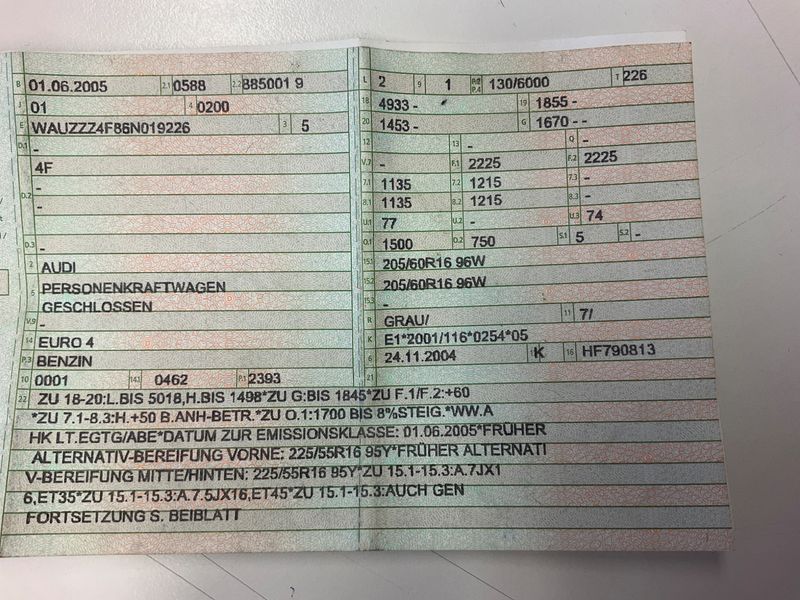 B 01.06.2005 2.1 0588 2.2 885001 9
J 01 4 0200
E WAUZZZ4F86N019226 3 5
D.1 -
4F
D.2 -
-
D.3 -
2 AUDI
5 PERSONENKRAFTWAGEN
GESCHLOSSEN
V.9 -
14 EURO 4
P.3 BENZIN
10 0001 14.1 0462 P.1 2393
L 2 9 1 P.2 P.4 130/6000 T 226
18 4933 - 19 1855 -
20 1453 - G 1670 - -
12 - 13 - Q -
V.7 - F.1 2225 F.2 2225
7.1 1135 7.2 1215 7.3 -
8.1 1135 8.2 1215 8.3 -
U.1 77 U.2 - U.3 74
O.1 1500 O.2 750 S.1 5 S.2 -
15.1 205/60R16 96W
15.2 205/60R16 96W
15.3 -
R GRAU/ 11 7/
K E1*2001/116*0254*05
6 24.11.2004 17 K 16 HF790813
21
22 ZU 18-20:L.BIS 5018,H.BIS 1498*ZU G:BIS 1845*ZU F.1/F.2:+60
*ZU 7.1-8.3:H.+50 B.ANH-BETR.*ZU O.1:1700 BIS 8%STEIG.*WW.A
HK LT.EGTG/ABE*DATUM ZUR EMISSIONSKLASSE: 01.06.2005*FRÜHER
ALTERNATIV-BEREIFUNG VORNE: 225/55R16 95Y*FRÜHER ALTERNATI
V-BEREIFUNG MITTE/HINTEN: 225/55R16 95Y*ZU 15.1-15.3:A.7JX1
6,ET35*ZU 15.1-15.3:A.7.5JX16,ET45*ZU 15.1-15.3:AUCH GEN
FORTSETZUNG S. BEIBLATT